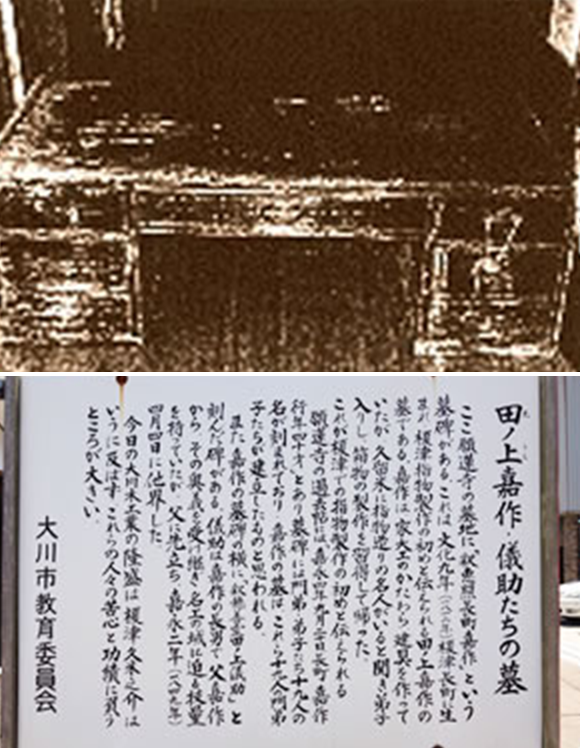 田ノ上嘉作・儀助たちの墓
ここ願連寺の墓地に「釈恵照 長町嘉作」という
墓碑がある。これは文化九年(一八一二年)榎津長町に生
まれ榎津指物製作の初めと伝えられる田ノ上嘉作の
墓である。嘉作は家大工のかたわら、建具を作って
いたが、久留米に指物造りの名人がいると聞き、弟子
入りし、箱物の製作を習得して帰った。
これが榎津での指物製作の初めと伝えられる。
願連寺の過去帖には嘉永五年九月二日長町嘉作
行年四十才とあり墓碑には門弟、弟子ら十九人の
名が刻まれており、嘉作の墓は、これら十九人の門弟
子たちが建立したものと思われる。
また、嘉作の墓碑の横に「田ノ上儀助」と
刻んだ碑がある。儀助は嘉作の長男で、父嘉作
から、その奥義を受け継ぎ名工の域に迫る技量
を持っていたが、父に先立ち、嘉永二年(一八四九年)
四月四日に他界した。
今日の大川木工業の隆盛は、榎津久米之介は
いうに及ばず、これらの人々の苦心と功績に負う
ところが大きい。
大川市教育委員会